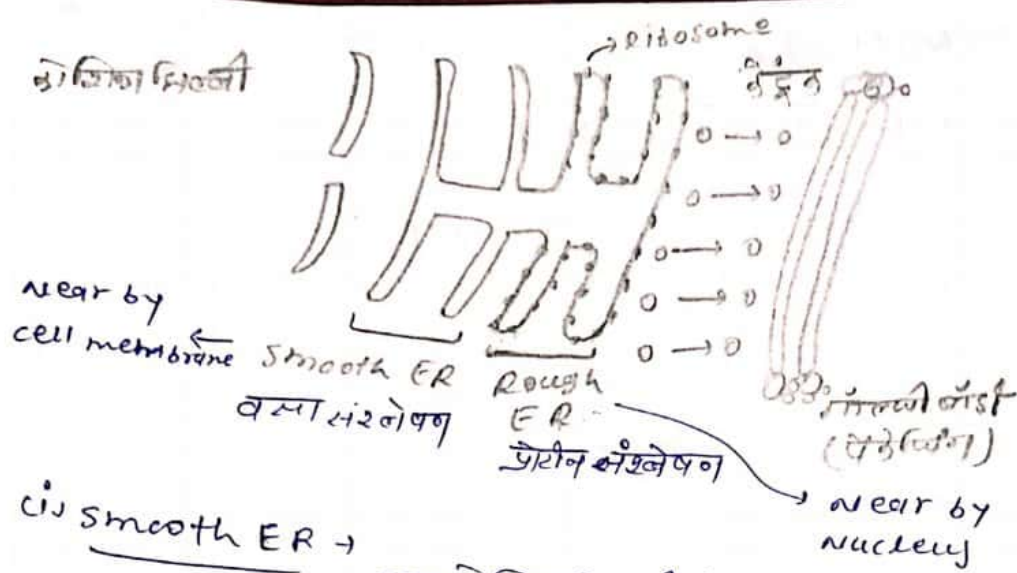 ribosome
कोशिका झिल्ली
near by
cell membrane
smooth ER
वसा संश्लेषण
Rough
ER
प्रोटीन संश्लेषण
गॉल्जी बॉडी
(पैकेजिंग)
near by
nucleus
(i) smooth ER →